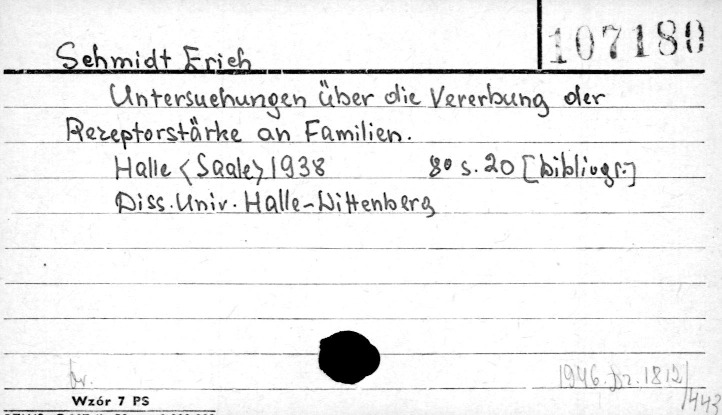 107180
Schmidt Erich
Untersuchungen über die Vererbung der
Rezeptorstärke an Familien.
Halle <Saale> 1938 8° s. 20 [bibliogr.]
Diss. Univ. Halle-Wittenberg
br.
1946. Dz. 1812/
/443
Wzór 7 PS